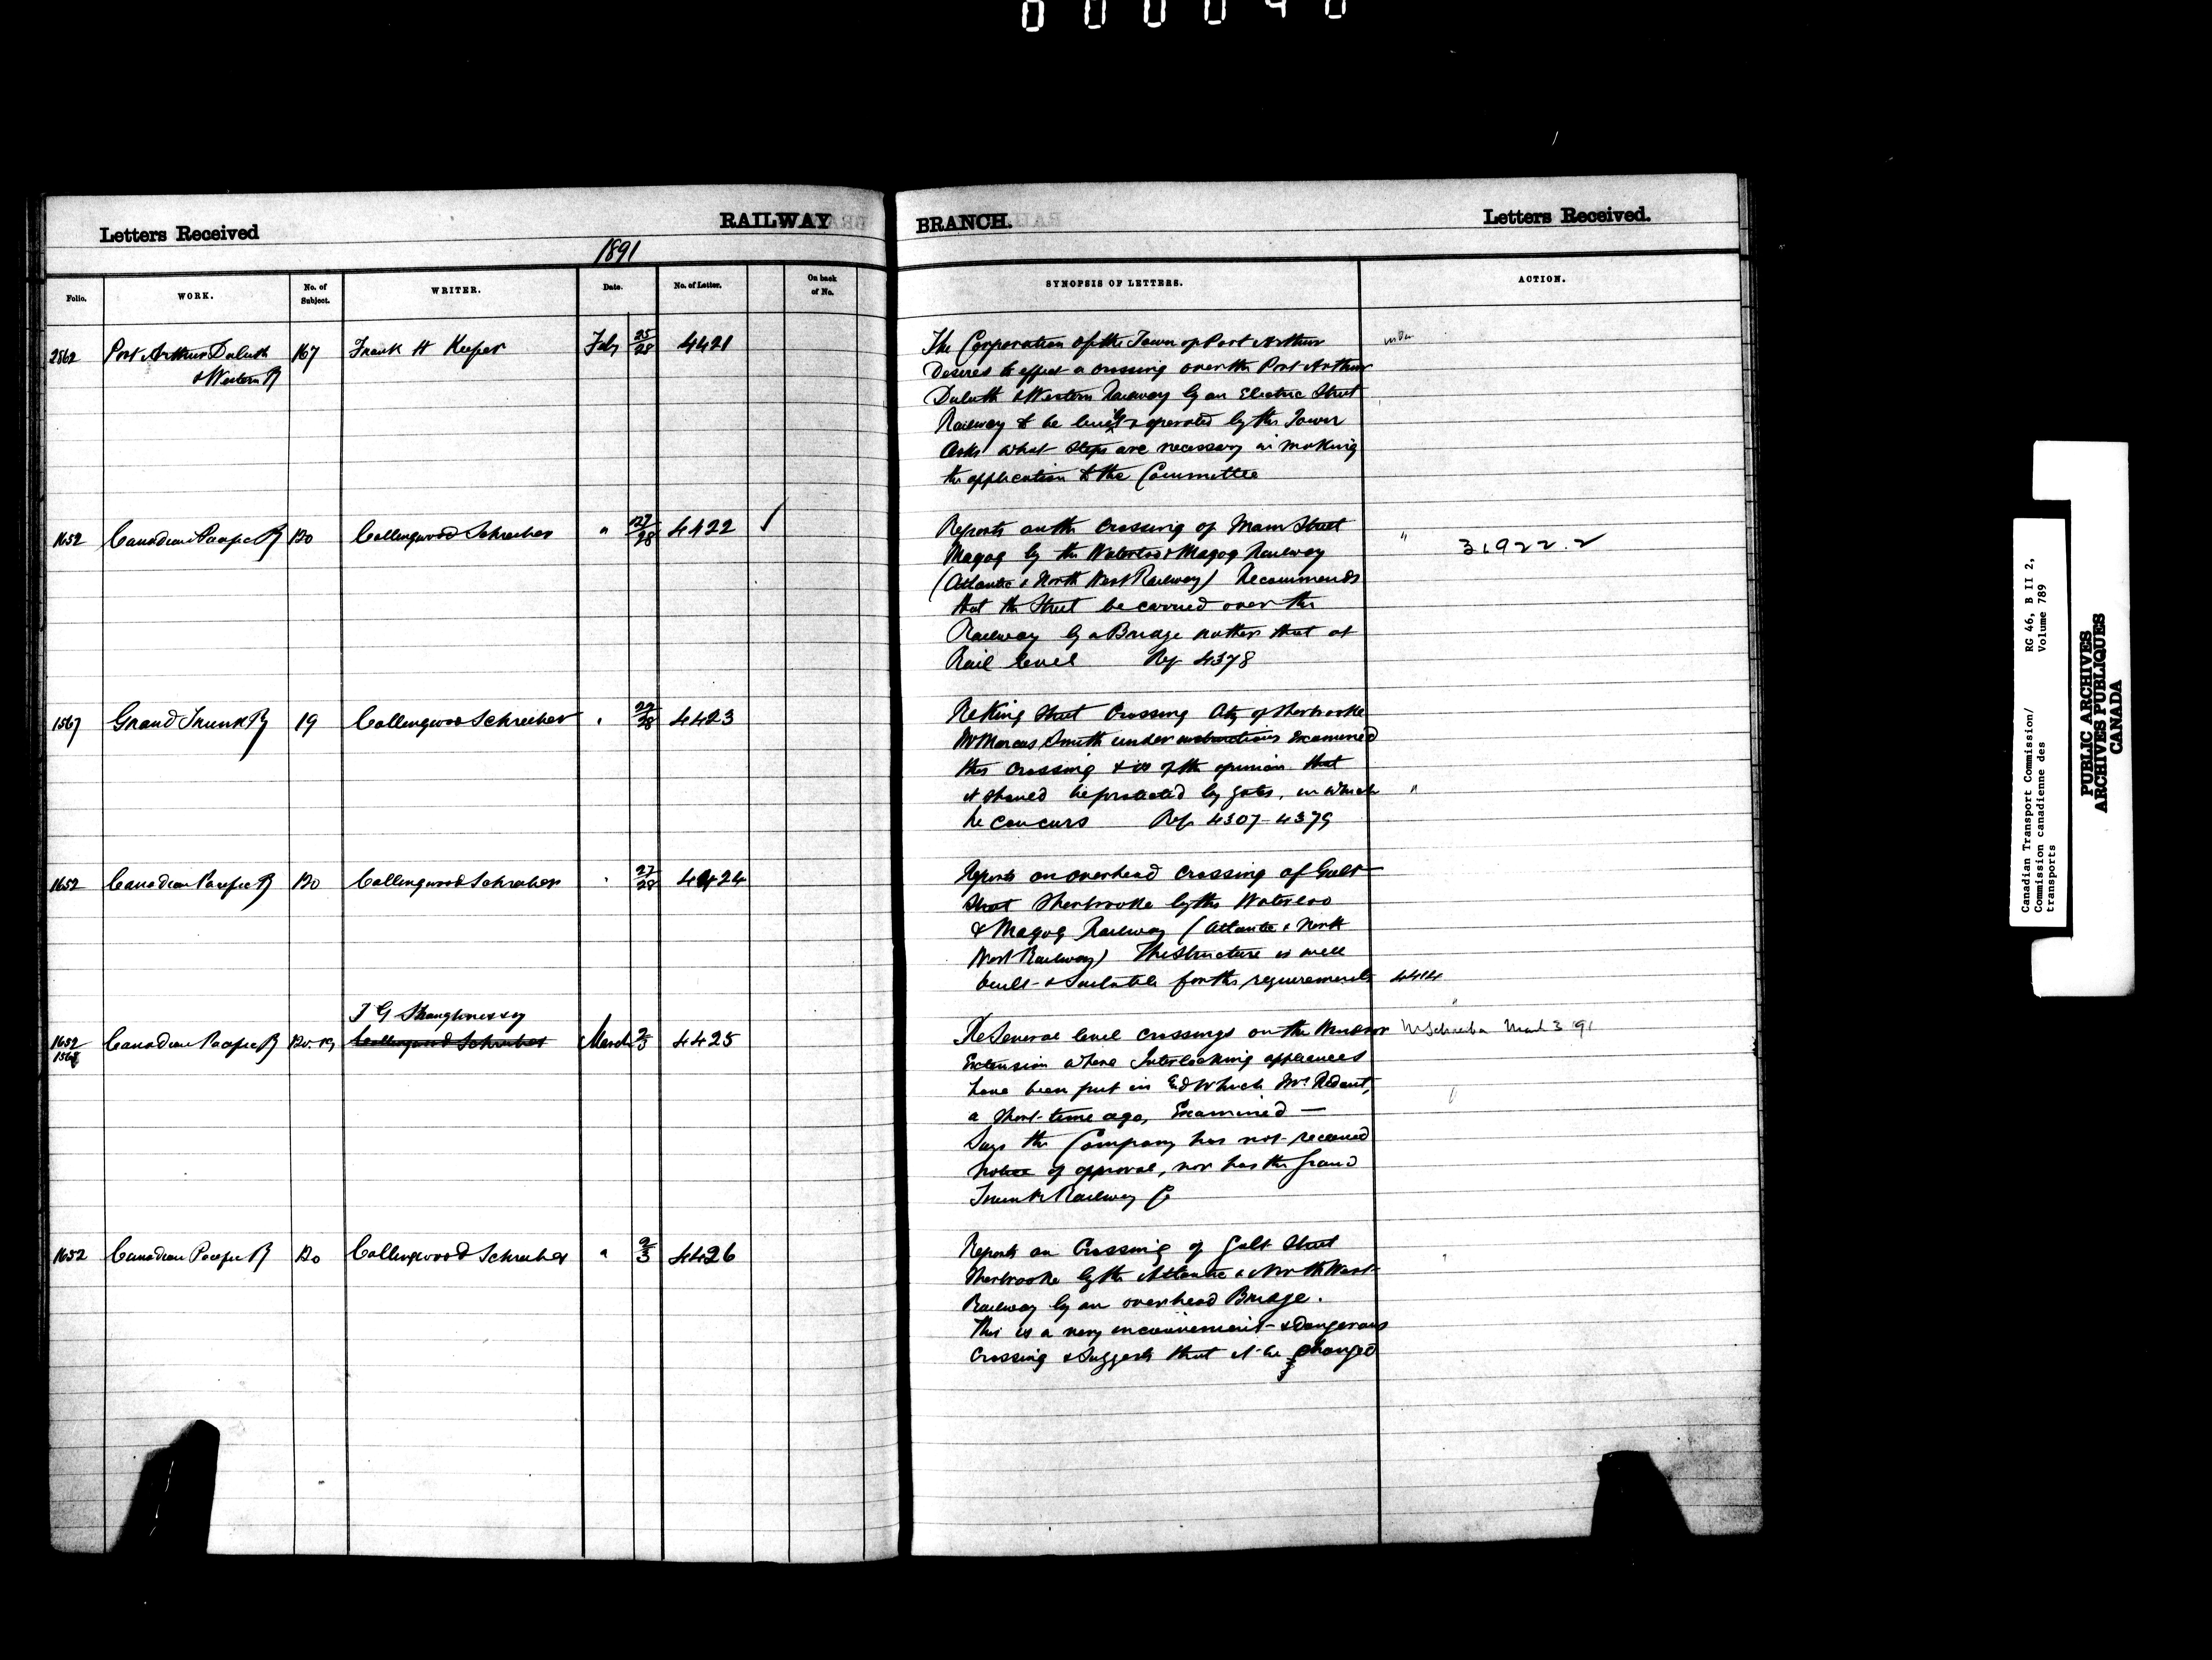 000040
Letters Received RAILWAY BRANCH. Letters Received.
1891
Folio. WORK. No. of Subject. WRITER. Date. No. of Letter. On back of No. SYNOPSIS OF LETTERS. ACTION.
2562 Port Arthur Duluth 167 Frank H Keefer Feby 25/28 4421
& Western Ry
The Corporation of the Town of Port Arthur
Desires to effect a crossing over the Port Arthur
Duluth & Western Railway by an Electric Street
Railway to be built & operated by the Town
Asks what steps are necessary in making
the application to the Committee
1652 Canadian Pacific Ry 120 Collingwood Schreiber " 27/28 4422 ✓
Reports on the Crossing of Main Street
Magog by the Waterloo & Magog Railway " 31922.2
(Atlantic & North West Railway) Recommends
that the Street be carried over the
Railway by a Bridge rather that at
Rail level Ref 4378
1567 Grand Trunk Ry 19 Collingwood Schreiber " 27/28 4423
Re King Street Crossing City of Sherbrooke
Mr Marcus Smith under instructions Examined
this crossing & is of the opinion that
it should be protected by gates, in which "
he concurs Ref 4307-4379
1652 Canadian Pacific Ry 120 Collingwood Schreiber " 27/28 4424
Reports on overhead crossing of Galt
Street Sherbrooke by the Waterloo
& Magog Railway (Atlantic & North
West Railway) The Structure is well
built & Suitable for the requirements 4414
T G Shaughnessy
1652 1568 Canadian Pacific Ry 120.19 Collingwood Schreiber March 2/3 4425
Re Several level crossings on the Windsor Mr Schreiber Mar 3 '91
Extension where Interlocking appliances
have been put in End which Mr Ridout,
a short time ago, Examined —
Says the Company has not received
notice of approval, nor has the Grand
Trunk Railway Co
1652 Canadian Pacific Ry 120 Collingwood Schreiber " 2/3 4426
Reports on Crossing of Galt Street
Sherbrooke by the Atlantic & North West
Railway by an overhead Bridge.
This is a very inconvenient & dangerous
Crossing & Suggests that it be changed
Canadian Transport Commission/ RG 46, B II 2,
Commission canadienne des Volume 789
transports
PUBLIC ARCHIVES
ARCHIVES PUBLIQUES
CANADA